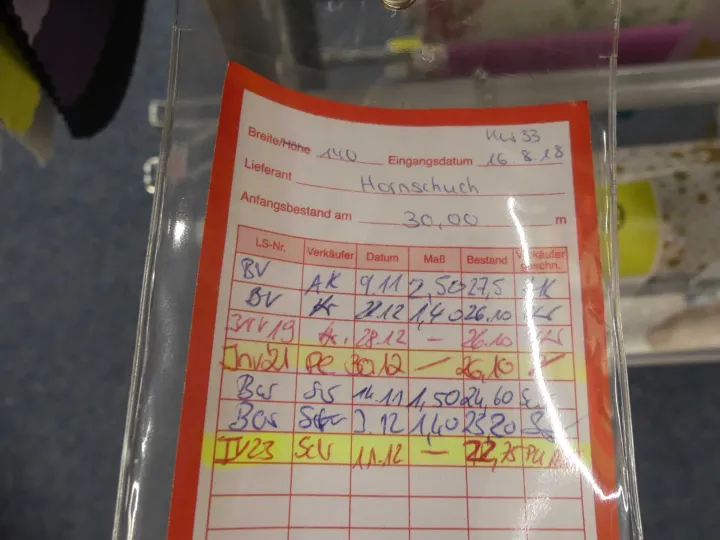 KW 33
Breite/Höhe 140 Eingangsdatum 16.8.18
Lieferant Hornschuch
Anfangsbestand am 30,00 m
LS-Nr. Verkäufer Datum Maß Bestand Verkäufer
BV AK 9.11 2,50 27,5 AK
BV 12 1,40 26.10
Inv 19 28.12 – 26.10
Inv21 PE 30.12 – 26,10
Bar 14.11 1,50 24,60
Bar 3.12 1,40 23,20
IV23 ScV 11.12 – 22,75